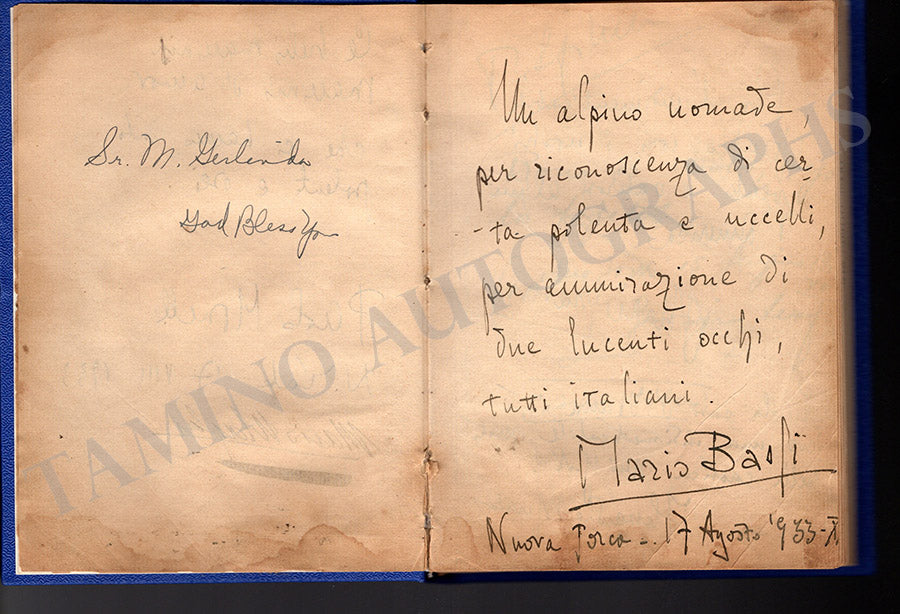 Sr. M. Gerlinda
God Bless You
Un alpino nomade,
per riconoscenza di cer-
-ta polenta e uccelli,
per ammirazione di
due lucenti occhi,
tutti italiani.
Mario Bassi
Nuova Jorca - 17 Agosto '933-XI
TAMINO AUTOGRAPHS